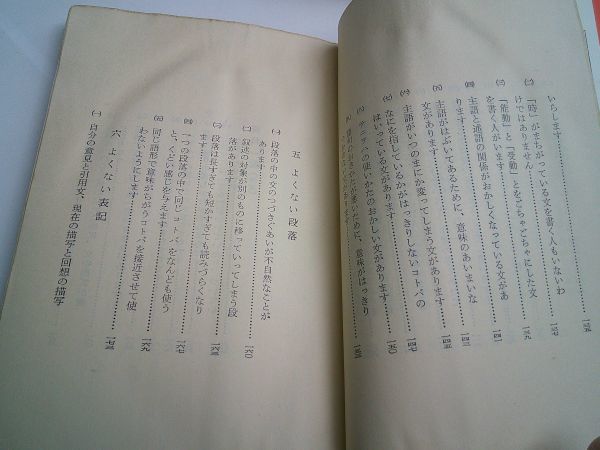 いらします……一三五
(二) 「時」がまちがっている文を書く人もいないわ
けではありません……一三七
(三) 「能動」と「受動」とをごちゃごちゃにした文
を書く人がいます……一三九
(四) 主語と述語の関係がおかしくなっている文があ
ります……一四一
(五) 主語がはぶいてあるために、意味のあいまいな
文があります……一四四
(六) 主語がいつのまにか変ってしまう文があります……一四七
(七) なにを指しているかがはっきりしないコトバの
はいっている文があります……一五〇
(八) テニヲハの使いかたのおかしい文があります
ために、意味がはっきり
五 よくない段落
(一) 段落の中の文のつづきぐあいが不自然なことが
あります
(二) 叙述の対象が別のものに移っていってしまう段
落があります……一六〇
(三) 段落は長すぎても短かすぎても読みづらくなり
ます……一六三
(四) 一つの段落の中で同じコトバをなんども使う
と、くどい感じを与えます……一六七
(五) 同じ語形で意味がちがうコトバを接近させて使
わないようにします……一六九
六 よくない表記……一七三
(一) 自分の意見と引用文、現在の描写と回想の描写